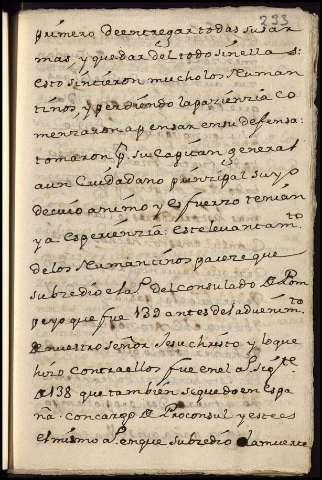 233
primero deentregar todas susar
mas, y quedar del todo sinellas:
esto sintieron mucho los Numan
tinos, y perdiendo lapaziënzia co
menzaron a pensar en su defensa:
tomaron pr. su Capitan general
a un Ciudadano prinzipal suyo
decuio animo y esfuerzo tenian
ya esperiënzia: este levantamto.
de los Numantinos pareze que
subzedio el aº. del Consulado de Pom
peyo que fue 139 antes del advenimto.
de nuestro señor Jesuchristo y loque
hizo contra ellos fue en el aº. sigte.
de 138 que tambien se quedo en Espa
ña. con cargo de Proconsul y este es
el mismo aº. en que subzedio la muerte